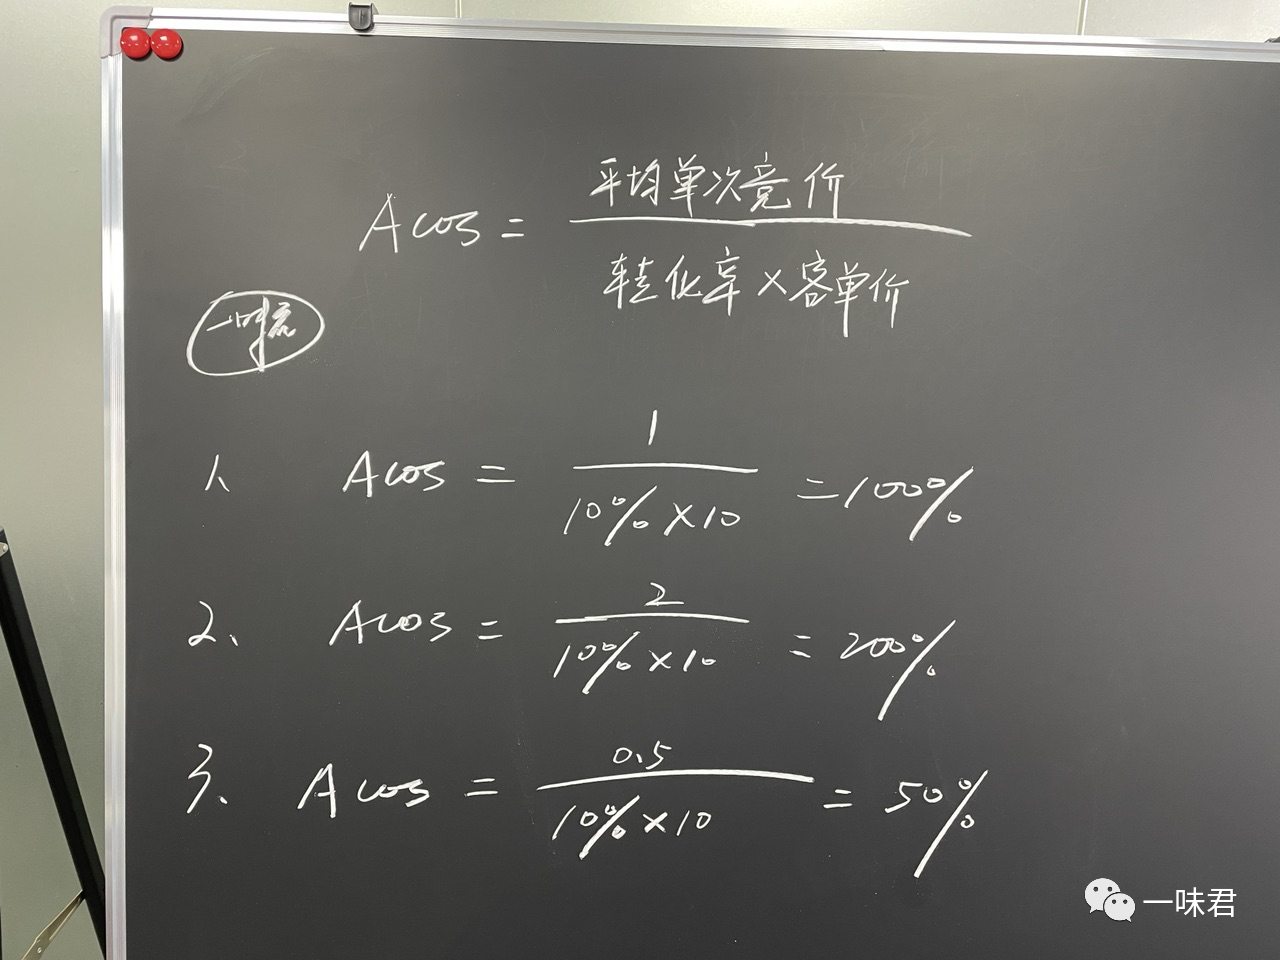 Acos = 平均单次竞价 / 转化率×客单价
1、 Acos = 1 / 10%×10 = 100%
2、 Acos = 2 / 10%×10 = 200%
3、 Acos = 0.5 / 10%×10 = 50%
一味君